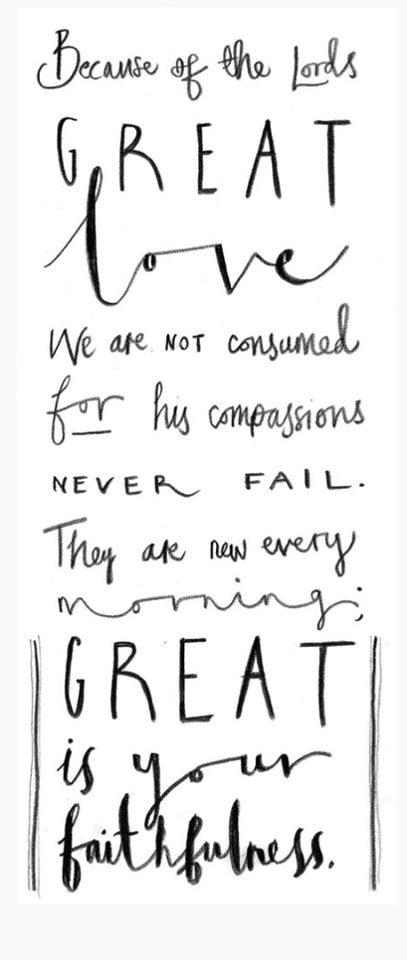 Because of the Lords
GREAT
love
We are NOT consumed
for his compassions
NEVER FAIL.
They are new every
morning;
GREAT
is your
faithfulness.